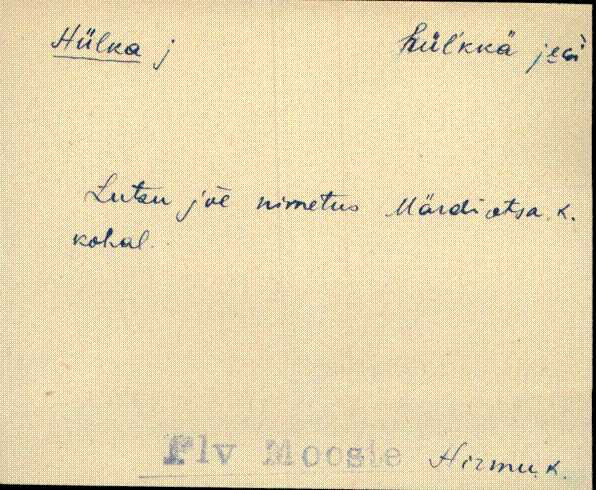 Hülka j hül'kkä jeḡi
Lutsu jõe nimetus Märdiotsa k.
kohal.
Plv Mooste Hirmu k.